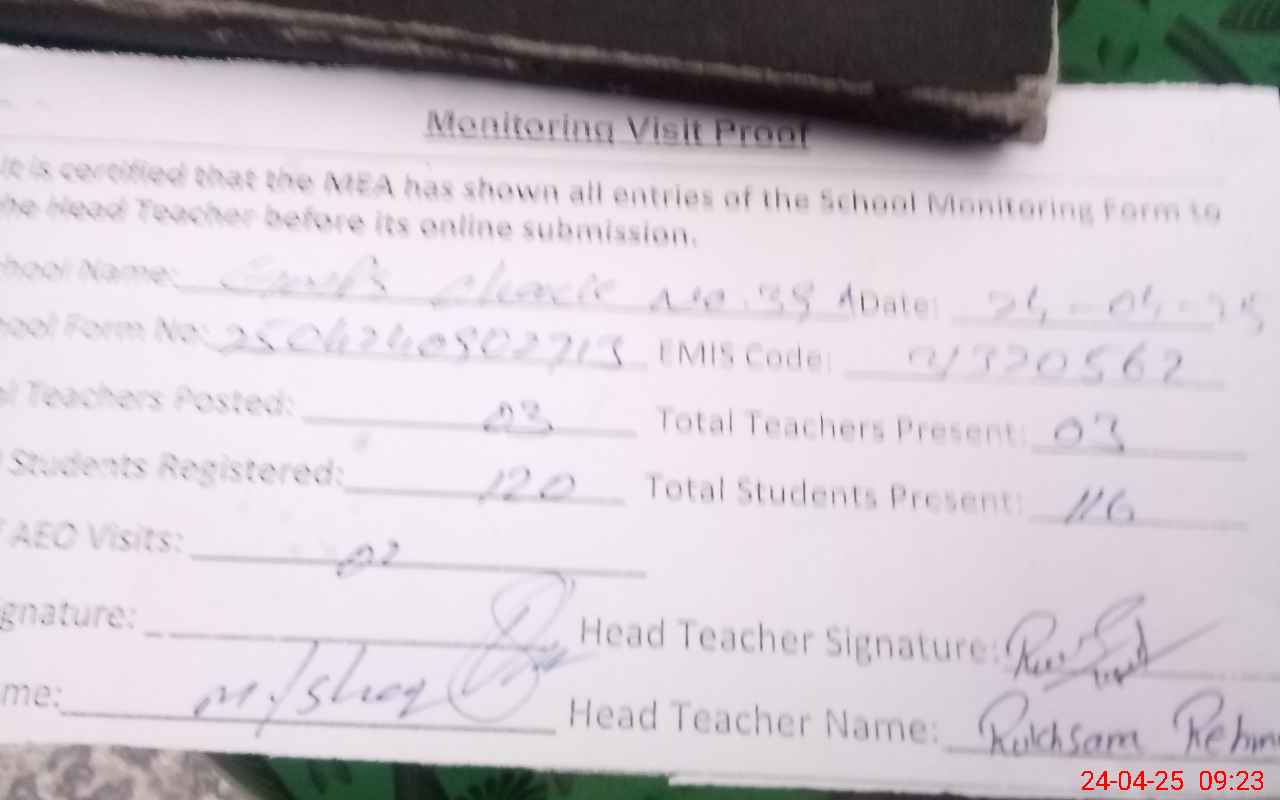 Monitoring Visit Proof
It is certified that the MEA has shown all entries of the School Monitoring Form to
he Head Teacher before its online submission.
chool Name: Chack No. 39 Date: 24-04-25
ool Form No: 2504240902713 EMIS Code:
l Teachers Posted: 03 Total Teachers Present: 03
Students Registered: 120 Total Students Present: 116
AEO Visits: 02
gnature: Head Teacher Signature:
me: M. Ishaq Head Teacher Name: Rukhsana Rehm
24-04-25 09:23